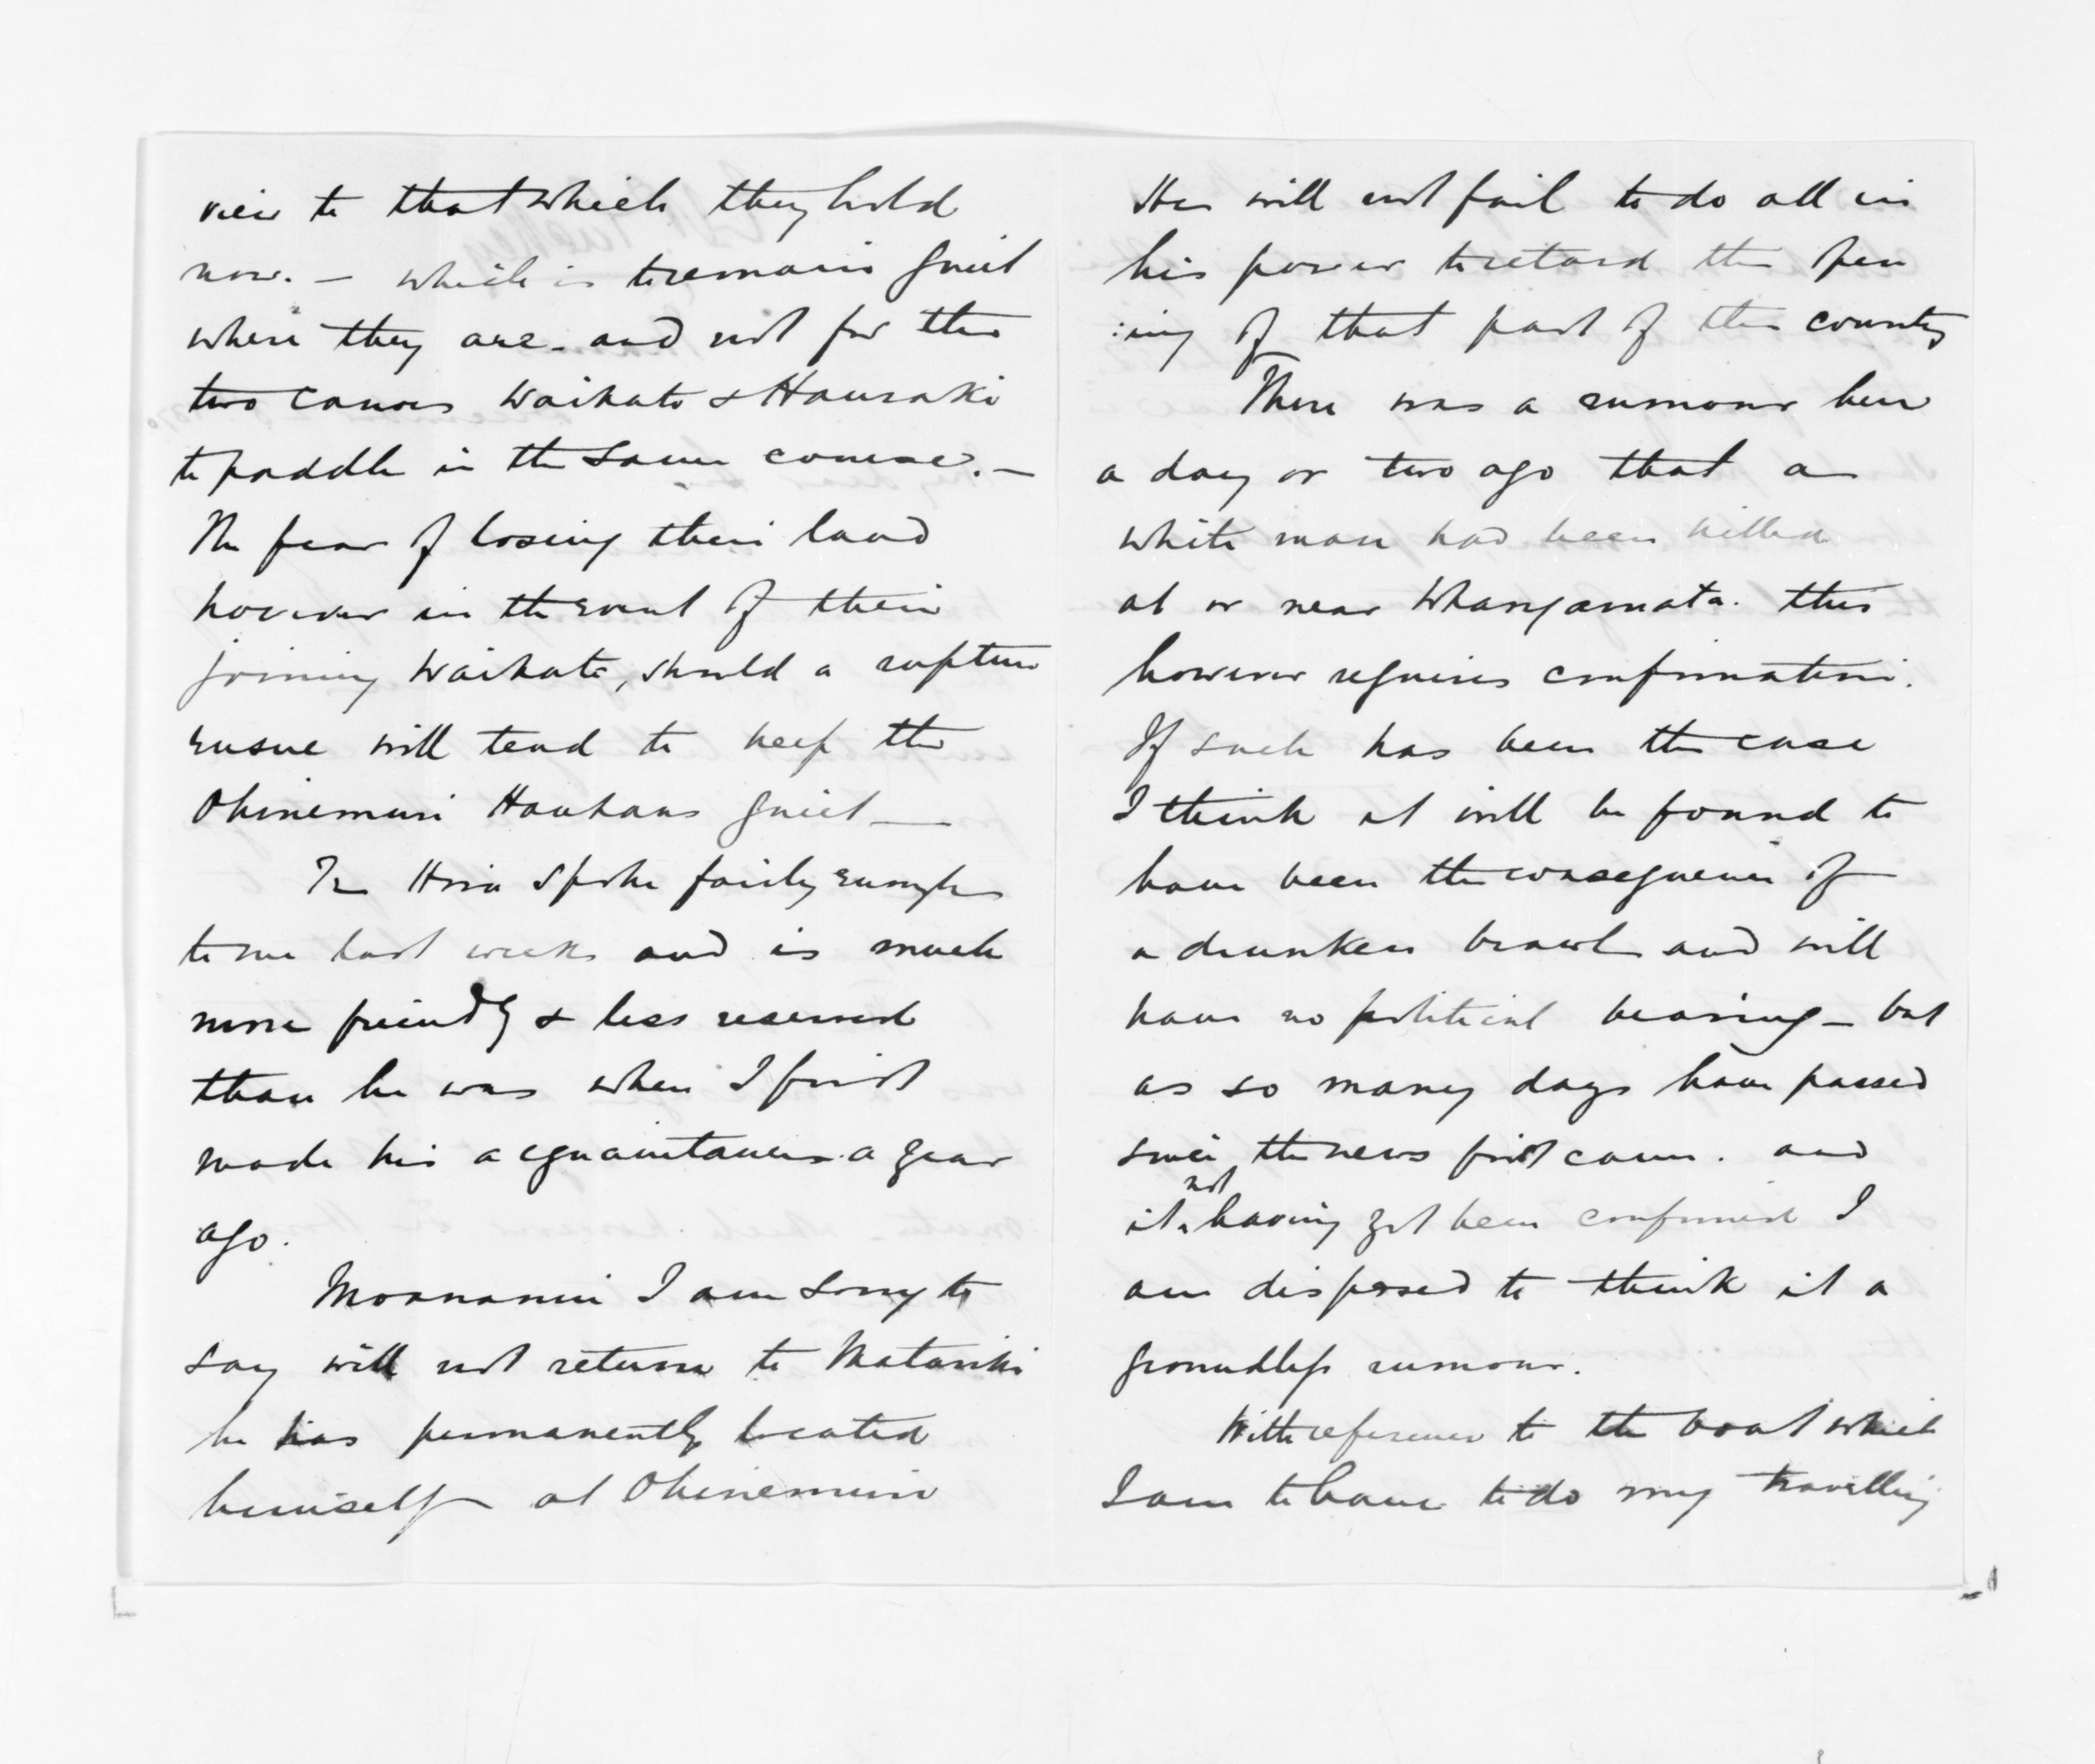 view to that which they hold
now. — which is to remain quiet
where they are - and not for the
two canoes Waikato & Hauraki
to paddle in the same course. —
The fear of losing their land
however in the event of their
joining Waikato, should a rupture
ensue will tend to keep the
Ohinemuri Hauhaus quiet —
Te Hira spoke fairly enough
to me last week and is much
more friendly & less reserved
than he was when I first
made his acquaintance a year
ago.
Moananui I am sorry to
say will not return to Matariki
he has permanently located
himself at Ohinemuri
He will not fail to do all in
his power to retard the open
:ing of that part of the country
There was a rumour here
a day or two ago that a
white man had been killed
at or near Whangamata. this
however requires confirmation.
If such has been the case
I think it will be found to
have been the consequence of
a drunken brawl and will
have no political bearing - but
as so many days have passed
since the news first came. and
it not having yet been confirmed I
am disposed to think it a
groundless rumour.
With reference to the boat which
I am to have to do my travelling